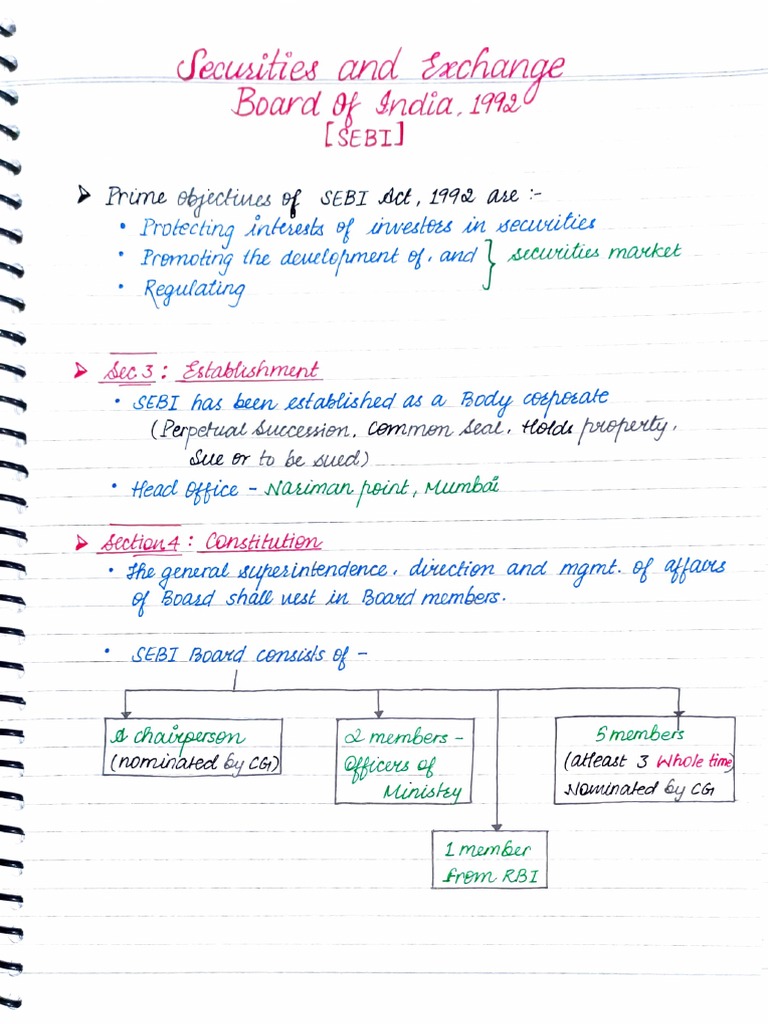 Securities and Exchange
Board Of India, 1992
[SEBI]
➤ Prime objectives of SEBI Act, 1992 are :-
• Protecting interests of investors in securities
• Promoting the development of, and } securities market
• Regulating
➤ Sec 3 : Establishment
• SEBI has been established as a Body corporate
(Perpetual Succession, Common Seal, Holds property,
Sue or to be sued)
• Head Office - Nariman point, Mumbai
➤ Section 4 : Constitution
• The general superintendence, direction and mgmt. of affairs
of Board shall vest in Board members.
• SEBI Board consists of -
A chairperson
(nominated by CG)
2 members -
Officers of
Ministry
5 members
(atleast 3 Whole time)
Nominated by CG
1 member
from RBI